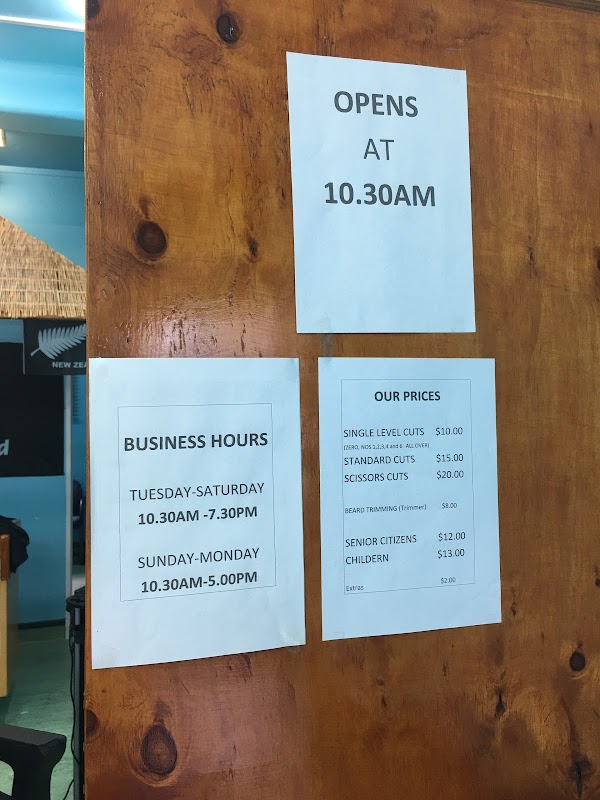 OPENS
AT
10.30AM
BUSINESS HOURS
TUESDAY-SATURDAY
10.30AM -7.30PM
SUNDAY-MONDAY
10.30AM-5.00PM
OUR PRICES
SINGLE LEVEL CUTS $10.00
(ZERO, NOS 1,2,3,4 and 6 ALL OVER)
STANDARD CUTS $15.00
SCISSORS CUTS $20.00
BEARD TRIMMING (Trimmer) $8.00
SENIOR CITIZENS $12.00
CHILDERN $13.00
Extras $2.00
NEW ZEA